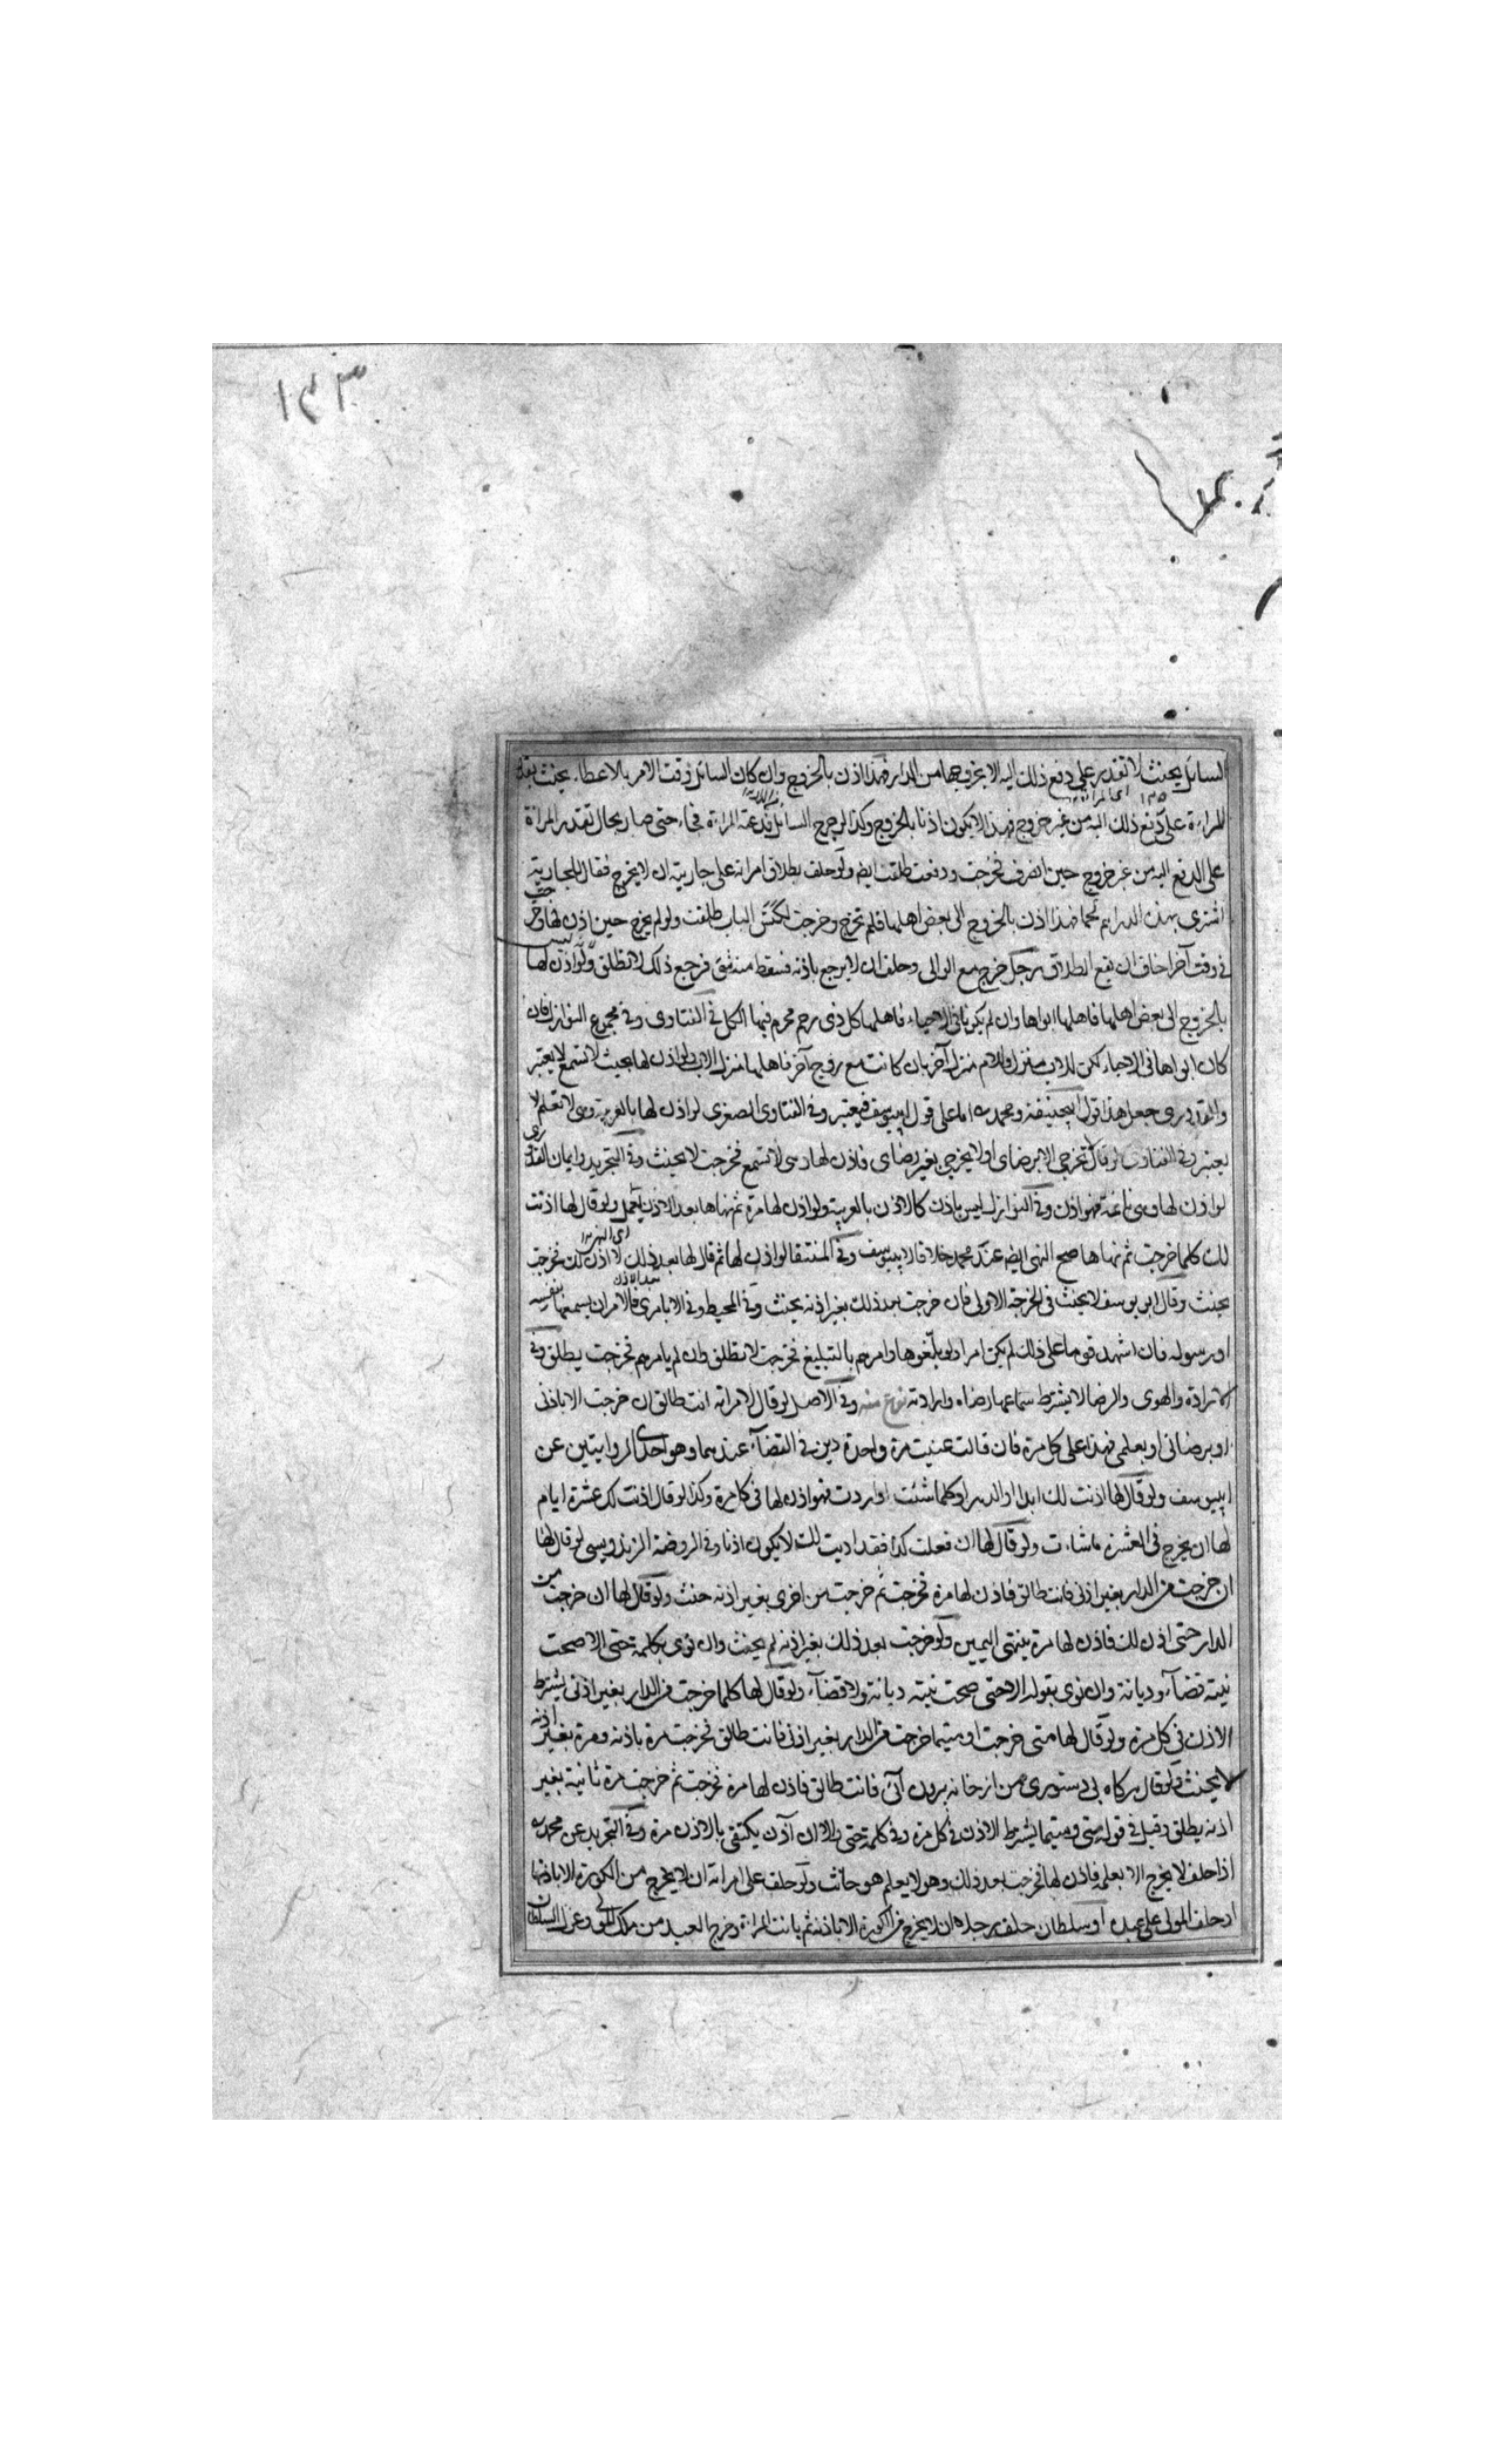 ١٤٣
السائل بحيث لا تقدر على دفع ذلك اليه الا بخروجها من الدار فهذا اذن بالخروج وان كان السائل وقت الامر بالاعطاء بحيث تقدر
المراءة على دفع ذلك اليه من غير خروج فهذا لا يكون اذنا بالخروج وكذا لو خرج السائل فدعته المراءة فجاء حتى صار بحال تقدر المراة
على الدفع اليه من غير خروج حين انصرف فخرجت ودفعت طلقت ايضا ولو حلف بطلاق امراته على جاريته ان لا يخرج فقال للجارية
اشترى بهذه الدراهم لحما فهذا اذن بالخروج الى بعض اهلها فلم تخرج وخرجت لكنس الباب طلقت ولو لم يخرج حين اذن لها وخرجت
في وقت آخر اخاف ان يقع الطلاق رجل خرج مع الوالى وحلف ان لا يرجع الا باذنه فسقط منه شئ فرجع لذلك لا تطلق ولو اذن لها
بالخروج الى بعض اهلها فاهلها ابواها وان لم يكونا فى الاحياء فاهلها كل ذى رحم محرم منها الكل فى الفتاوى وفى مجموع النوازل فان
كان ابواها فى الاحياء لكن للاب منزل وللام منزل آخر بان كانت مع زوج آخر فاهلها منزل الاب ولو اذن لها بحيث لا تسمع لا يعتبر
والقدورى جعل هذا قول ابيحنيفة ومحمد رح اما على قول ابيوسف فيعتبر وفى الفتاوى الصغرى لو اذن لها بالعربية وهى لا تعلم لا
يعتبر وفى الفتاوى لو قال لا تخرجى الا برضاى او لا يخرجى بغير رضاى فاذن لها وهى لا تسمع فخرجت لا يحنث وفى التجريد وايمان القدورى
لو اذن لها وهى نائمة فهو اذن وفى النوازل ليس باذن كالاذن بالعربية ولو اذن لها مرة ثم نهاها بعد الاذن يعمل ولو قال لها اذنت
لك كلما خرجت ثم نهاها صح النهى ايضا عند محمد خلافا لابيوسف وفى المنتقا لو اذن لها ثم قال لها بعد ذلك لا اذن لك فخرجت
يحنث وقال ابو يوسف لا يحنث فى الخرجة الاولى فان خرجت بعد ذلك بغير اذنه يحنث وفى المحيط وفى الا بامرى فالامر ان يسمعها بنفسه
او رسوله فان اشهد قوما على ذلك لم يكن امرا ولو بلغوها وامرهم بالتبليغ فخرجت لا تطلق وان لم يامرهم فخرجت يطلق وفى
الارادة والهوى والرضا لا يشترط سماعها رضاه وارادته نوع منه وفى الاصل لو قال لامراته انت طالق ان خرجت الا باذنى
او برضائى او بعلمى فهذا على كل مرة فان قالت عنيت مرة واحدة دين فى القضآء عندهما وهو احدى الروايتين عن
ابيوسف ولو قال لها اذنت لك ابدا او الدهر او كلما شئت او اردت فهو اذن لها فى كل مرة وكذا لو قال اذنت لك عشرة ايام
لها ان يخرج فى العشرة ما شاءت ولو قال لها ان فعلت كذا فقد اذنت لك لا يكون اذنا وفى الروضة الزندويسى لو قال لها
ان خرجت من الدار بغير اذنى فانت طالق فاذن لها مرة فخرجت ثم خرجت مرة اخرى بغير اذنه حنث ولو قال لها ان خرجت من
الدار حتى اذن لك فاذن لها مرة ينتهى اليمين ولو خرجت بعد ذلك بغير اذنه لم يحنث وان نوى بكلمة حتى الا صحت
نيته قضآء وديانة وان نوى بقوله الا حتى صحت نيته ديانة ولا قضآء ولو قال لها كلما خرجت من الدار بغير اذنى يشترط
الاذن فى كل مرة ولو قال لها متى خرجت او متيما خرجت من الدار بغير اذنى فانت طالق فخرجت مرة باذنه ومرة بغير اذنه
لا يحنث ولو قال هر كاه بى دستورى من از خانه برون آئى فانت طالق فاذن لها مرة فخرجت ثم خرجت مرة ثانية بغير
اذنه يطلق وقيل فى قوله متى ومتيما يشترط الاذن فى كل مرة وفى كلمة حتى والا ان آذن يكتفى بالاذن مرة وفى التجريد عن محمد رح
اذا حلف لا يخرج الا بعلمه فاذن لها فخرجت بعد ذلك وهو لا يعلم هو حانث ولو حلف على امراته ان لا يخرج من الكورة الا باذنها
او حلف المولى على عبده او سلطان حلف رجلا ان لا يخرج من الكورة الا باذنه ثم بانت المراة وخرج العبد من ملك المولى وعزل السلطان